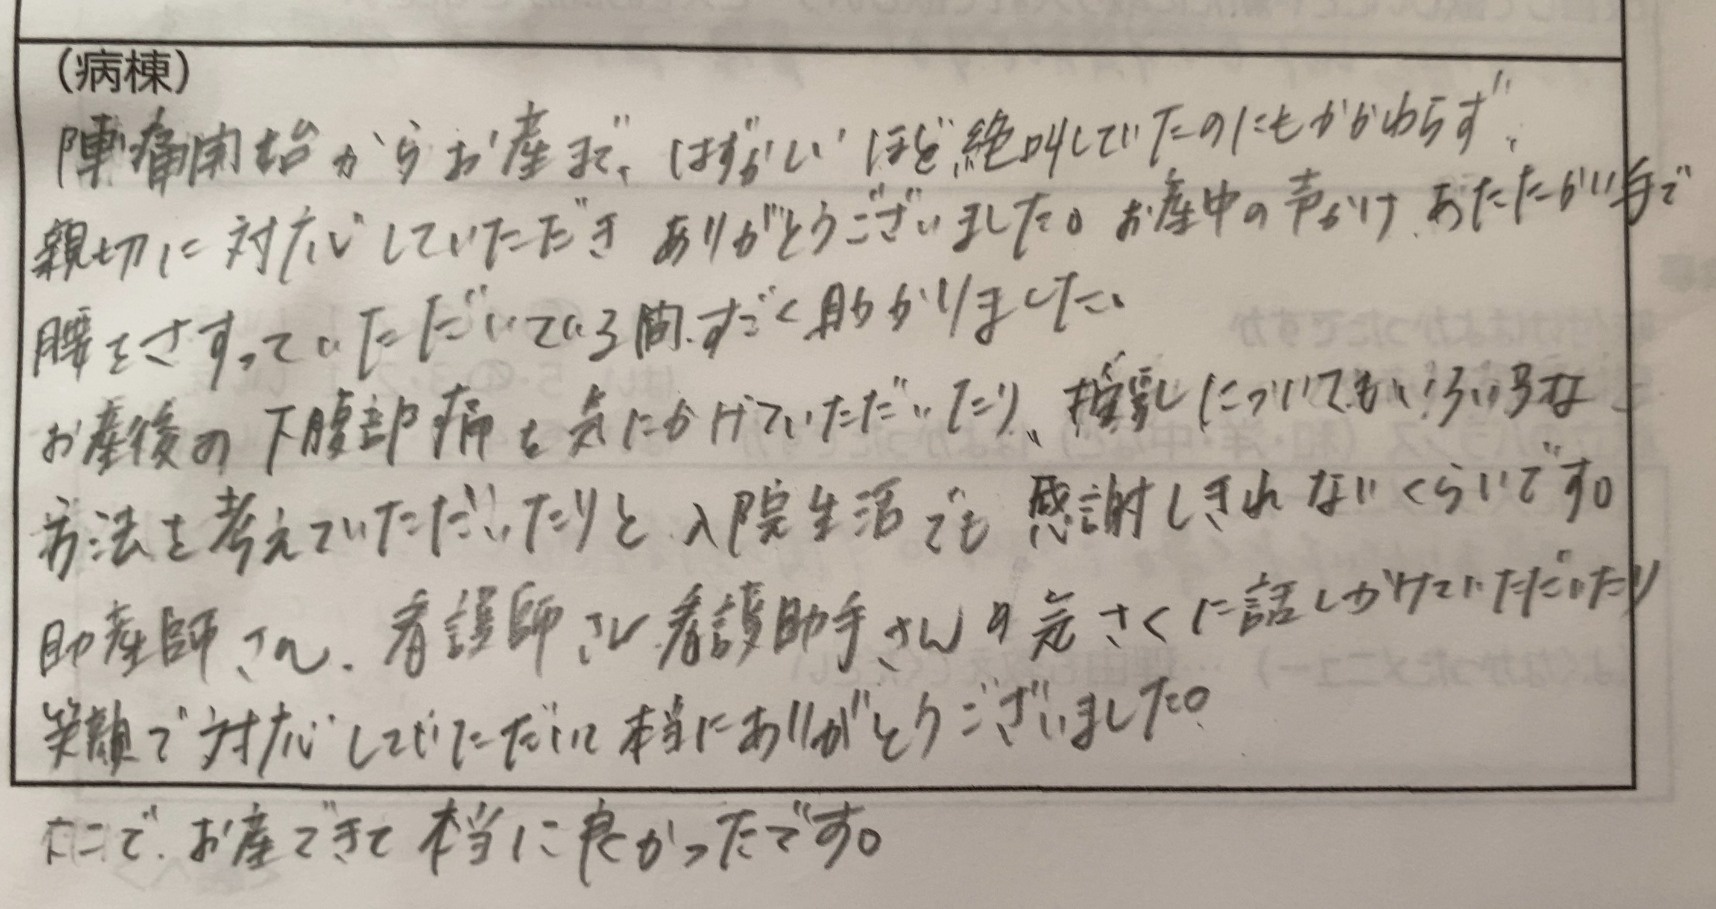 (病棟)
陣痛開始からお産まで、はずかしいほど絶叫していたのにもかかわらず、
親切に対応していただきありがとうございました。お産中の声かけ、あたたかい手で
腰をさすっていただいている間、すごく助かりました。
お産後の下腹部痛を気にかけていただいたり、授乳についてもいろいろな
方法を考えていただいたりと、入院生活でも感謝しきれないくらいです。
助産師さん、看護師さん、看護助手さんの気さくに話しかけていただいたり
笑顔で対応していただいて本当にありがとうございました。
で、お産できて本当に良かったです。